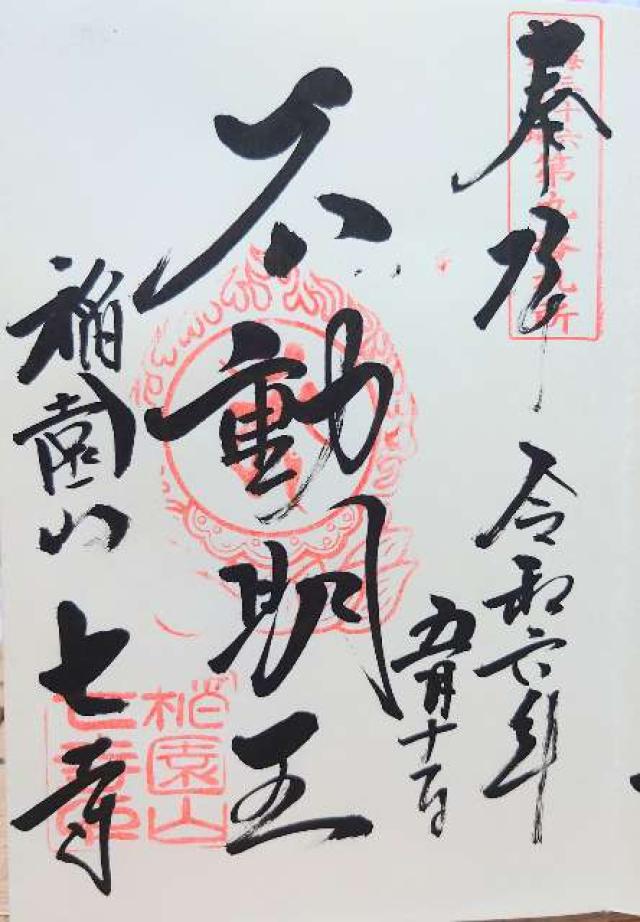 奉拝
令和六年
五月十一日
不動明王
稲園山 七寺
稲園山
七寺印